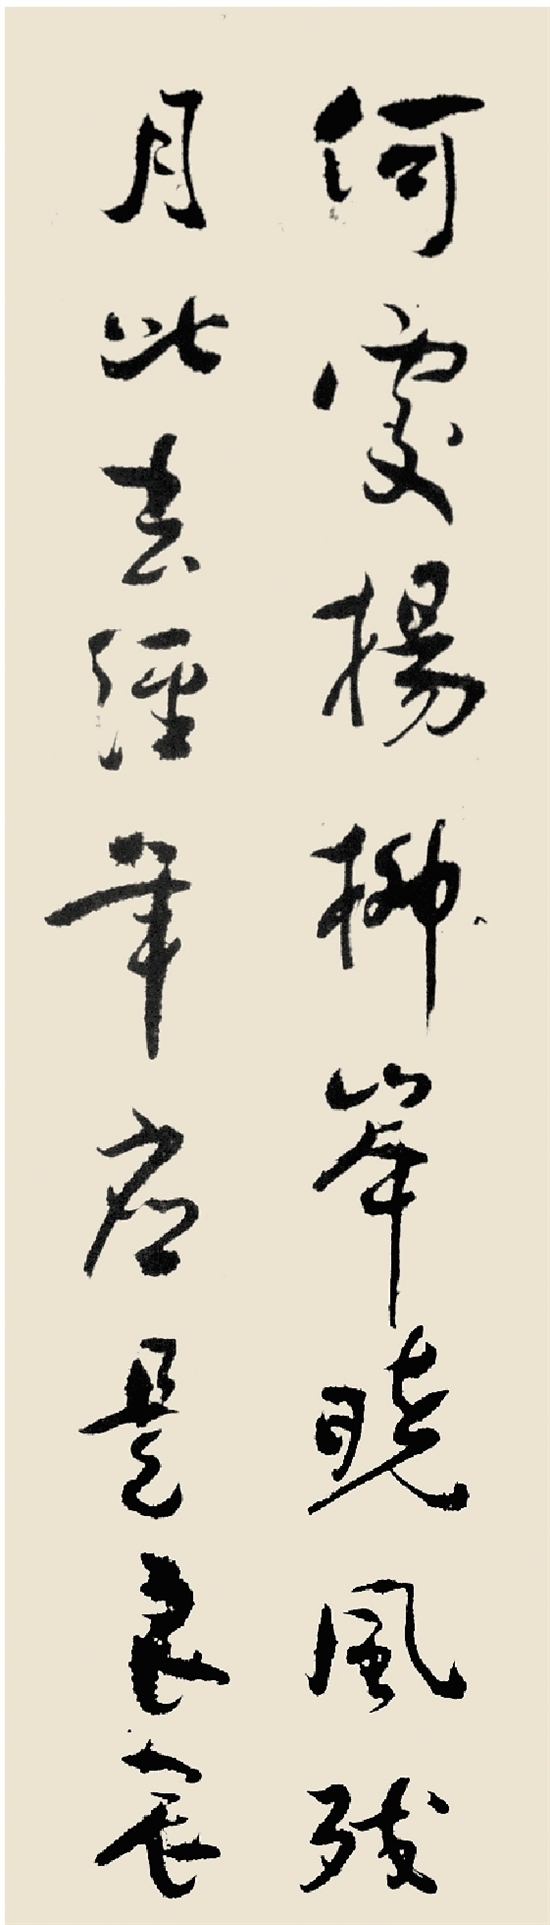 何處楊柳岸曉風殘
月此去經年應是良辰